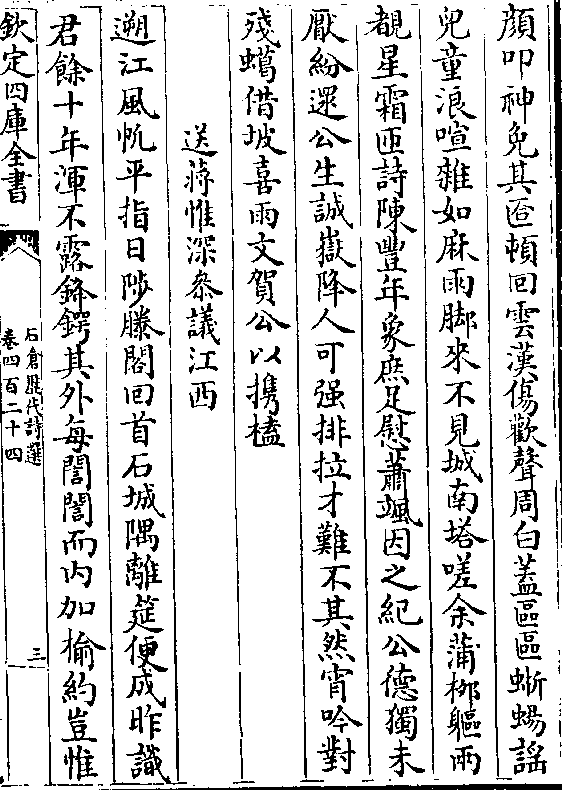 顔叩神免其匼頓回雲漢傷歡聲周白蓋區區蜥蜴謡
兒童浪喧雜如麻雨脚來不見城南塔嗟余蒲栁軀兩
覩星霜匝詩陳豐年象庶足慰蕭颯因之紀公德獨未
厭紛遝公生誠嶽降人可强排拉才難不其然宵吟對
殘蠟借坡喜雨文賀公以擕榼
送蔣惟深叅議江西
遡江風帆平指日陟滕閣回首石城隅離筵便成昨識
君餘十年渾不露鋒鍔其外每誾誾而内加檢約豈惟
欽定四庫全書
石倉歷代詩選
卷四百二十四
三